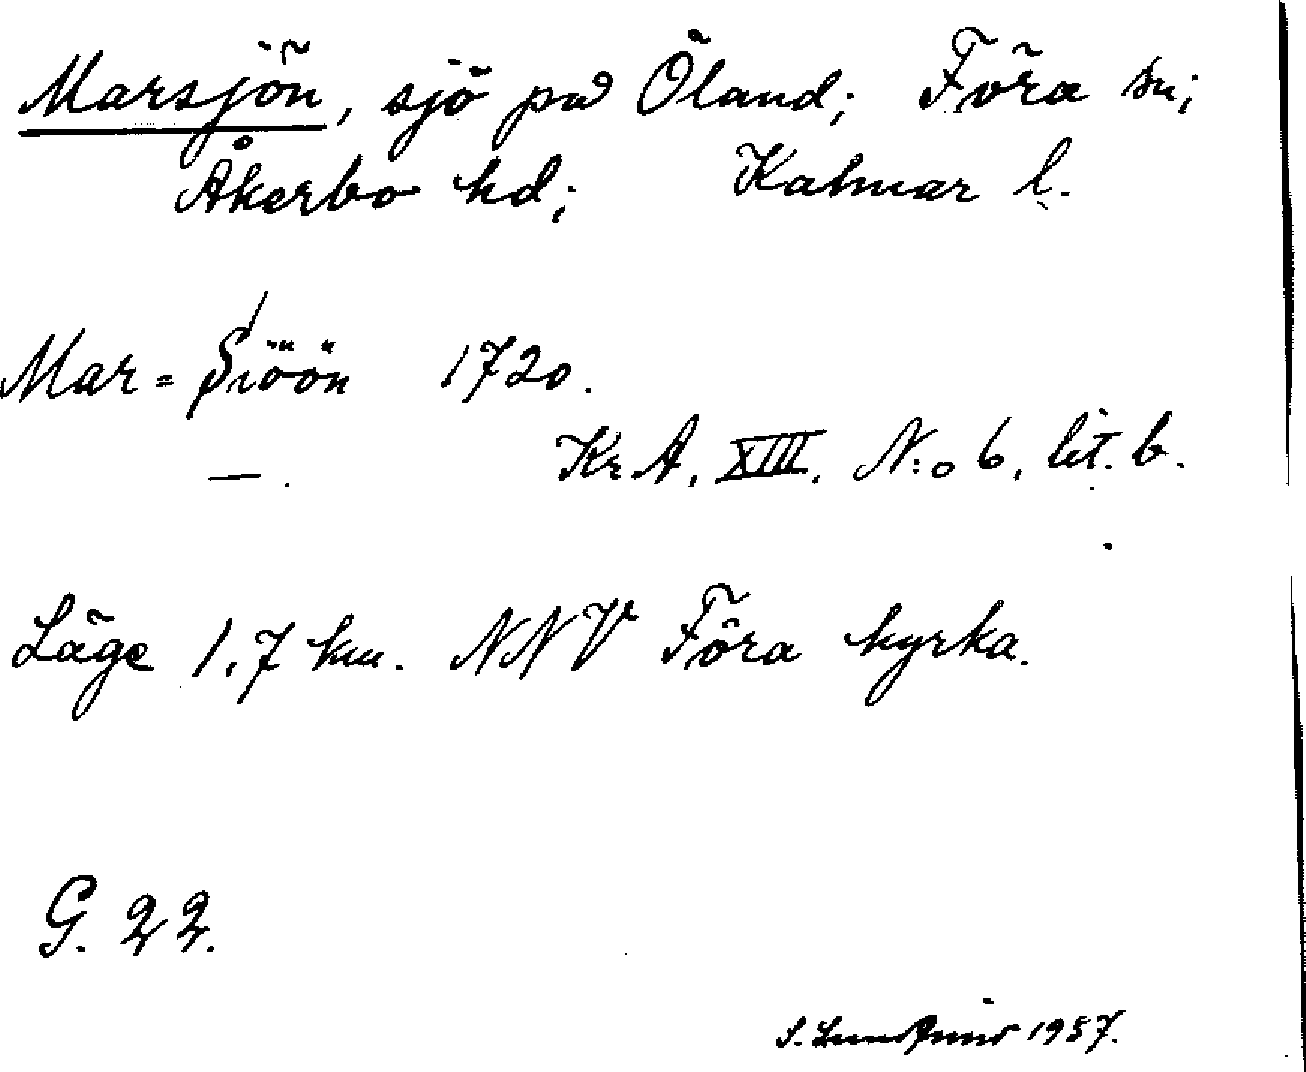 Marsjön, sjö på Öland; Föra sn;
Åkerbo hd; Kalmar l.
Mar = Siöön 1720.
— . Kr.A. XIII. N:o 6, lit. b.
Läge 1,7 km. NNV Föra kyrka.
G. 22.
S. 1957.